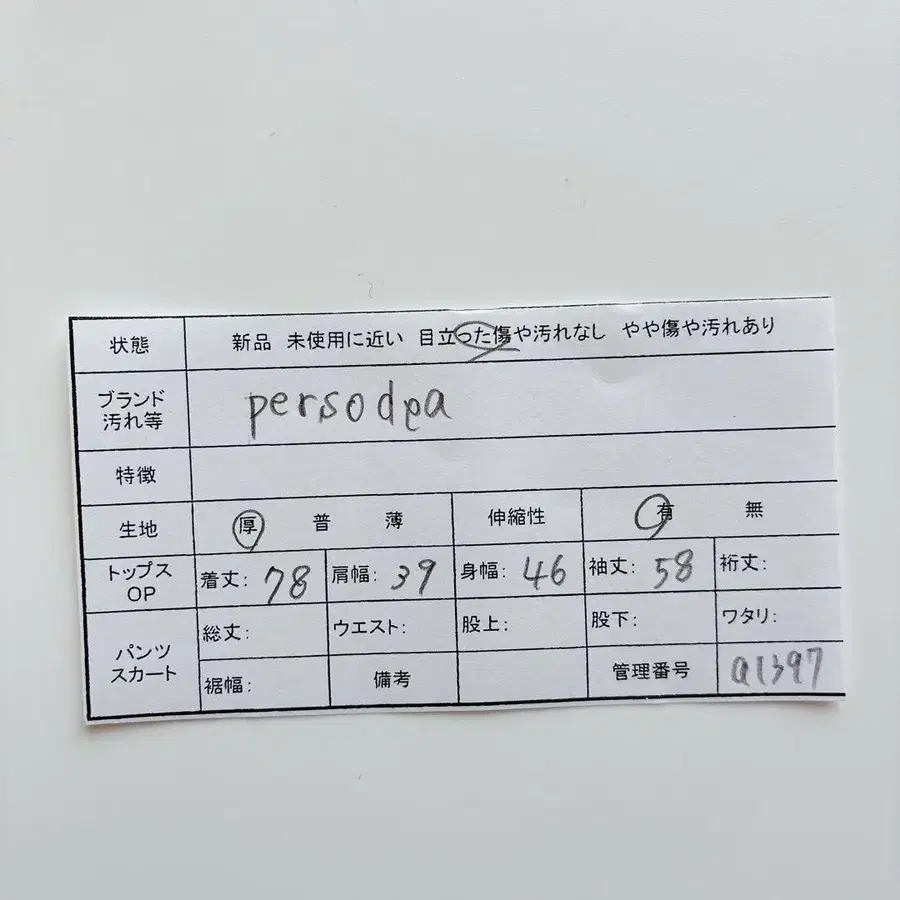 状態 新品 未使用に近い 目立った傷や汚れなし やや傷や汚れあり
ブランド
汚れ等 persodea
特徴
生地 厚 普 薄 伸縮性 有 無
トップス
OP 着丈: 78 肩幅: 39 身幅: 46 袖丈: 58 裄丈:
パンツ
スカート 総丈: ウエスト: 股上: 股下: ワタリ:
裾幅: 備考 管理番号 a1397